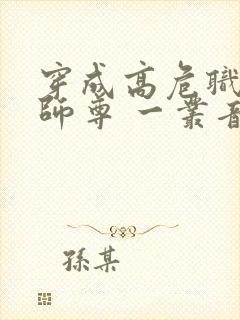 穿成高危職
師尊 一叢音
孫某